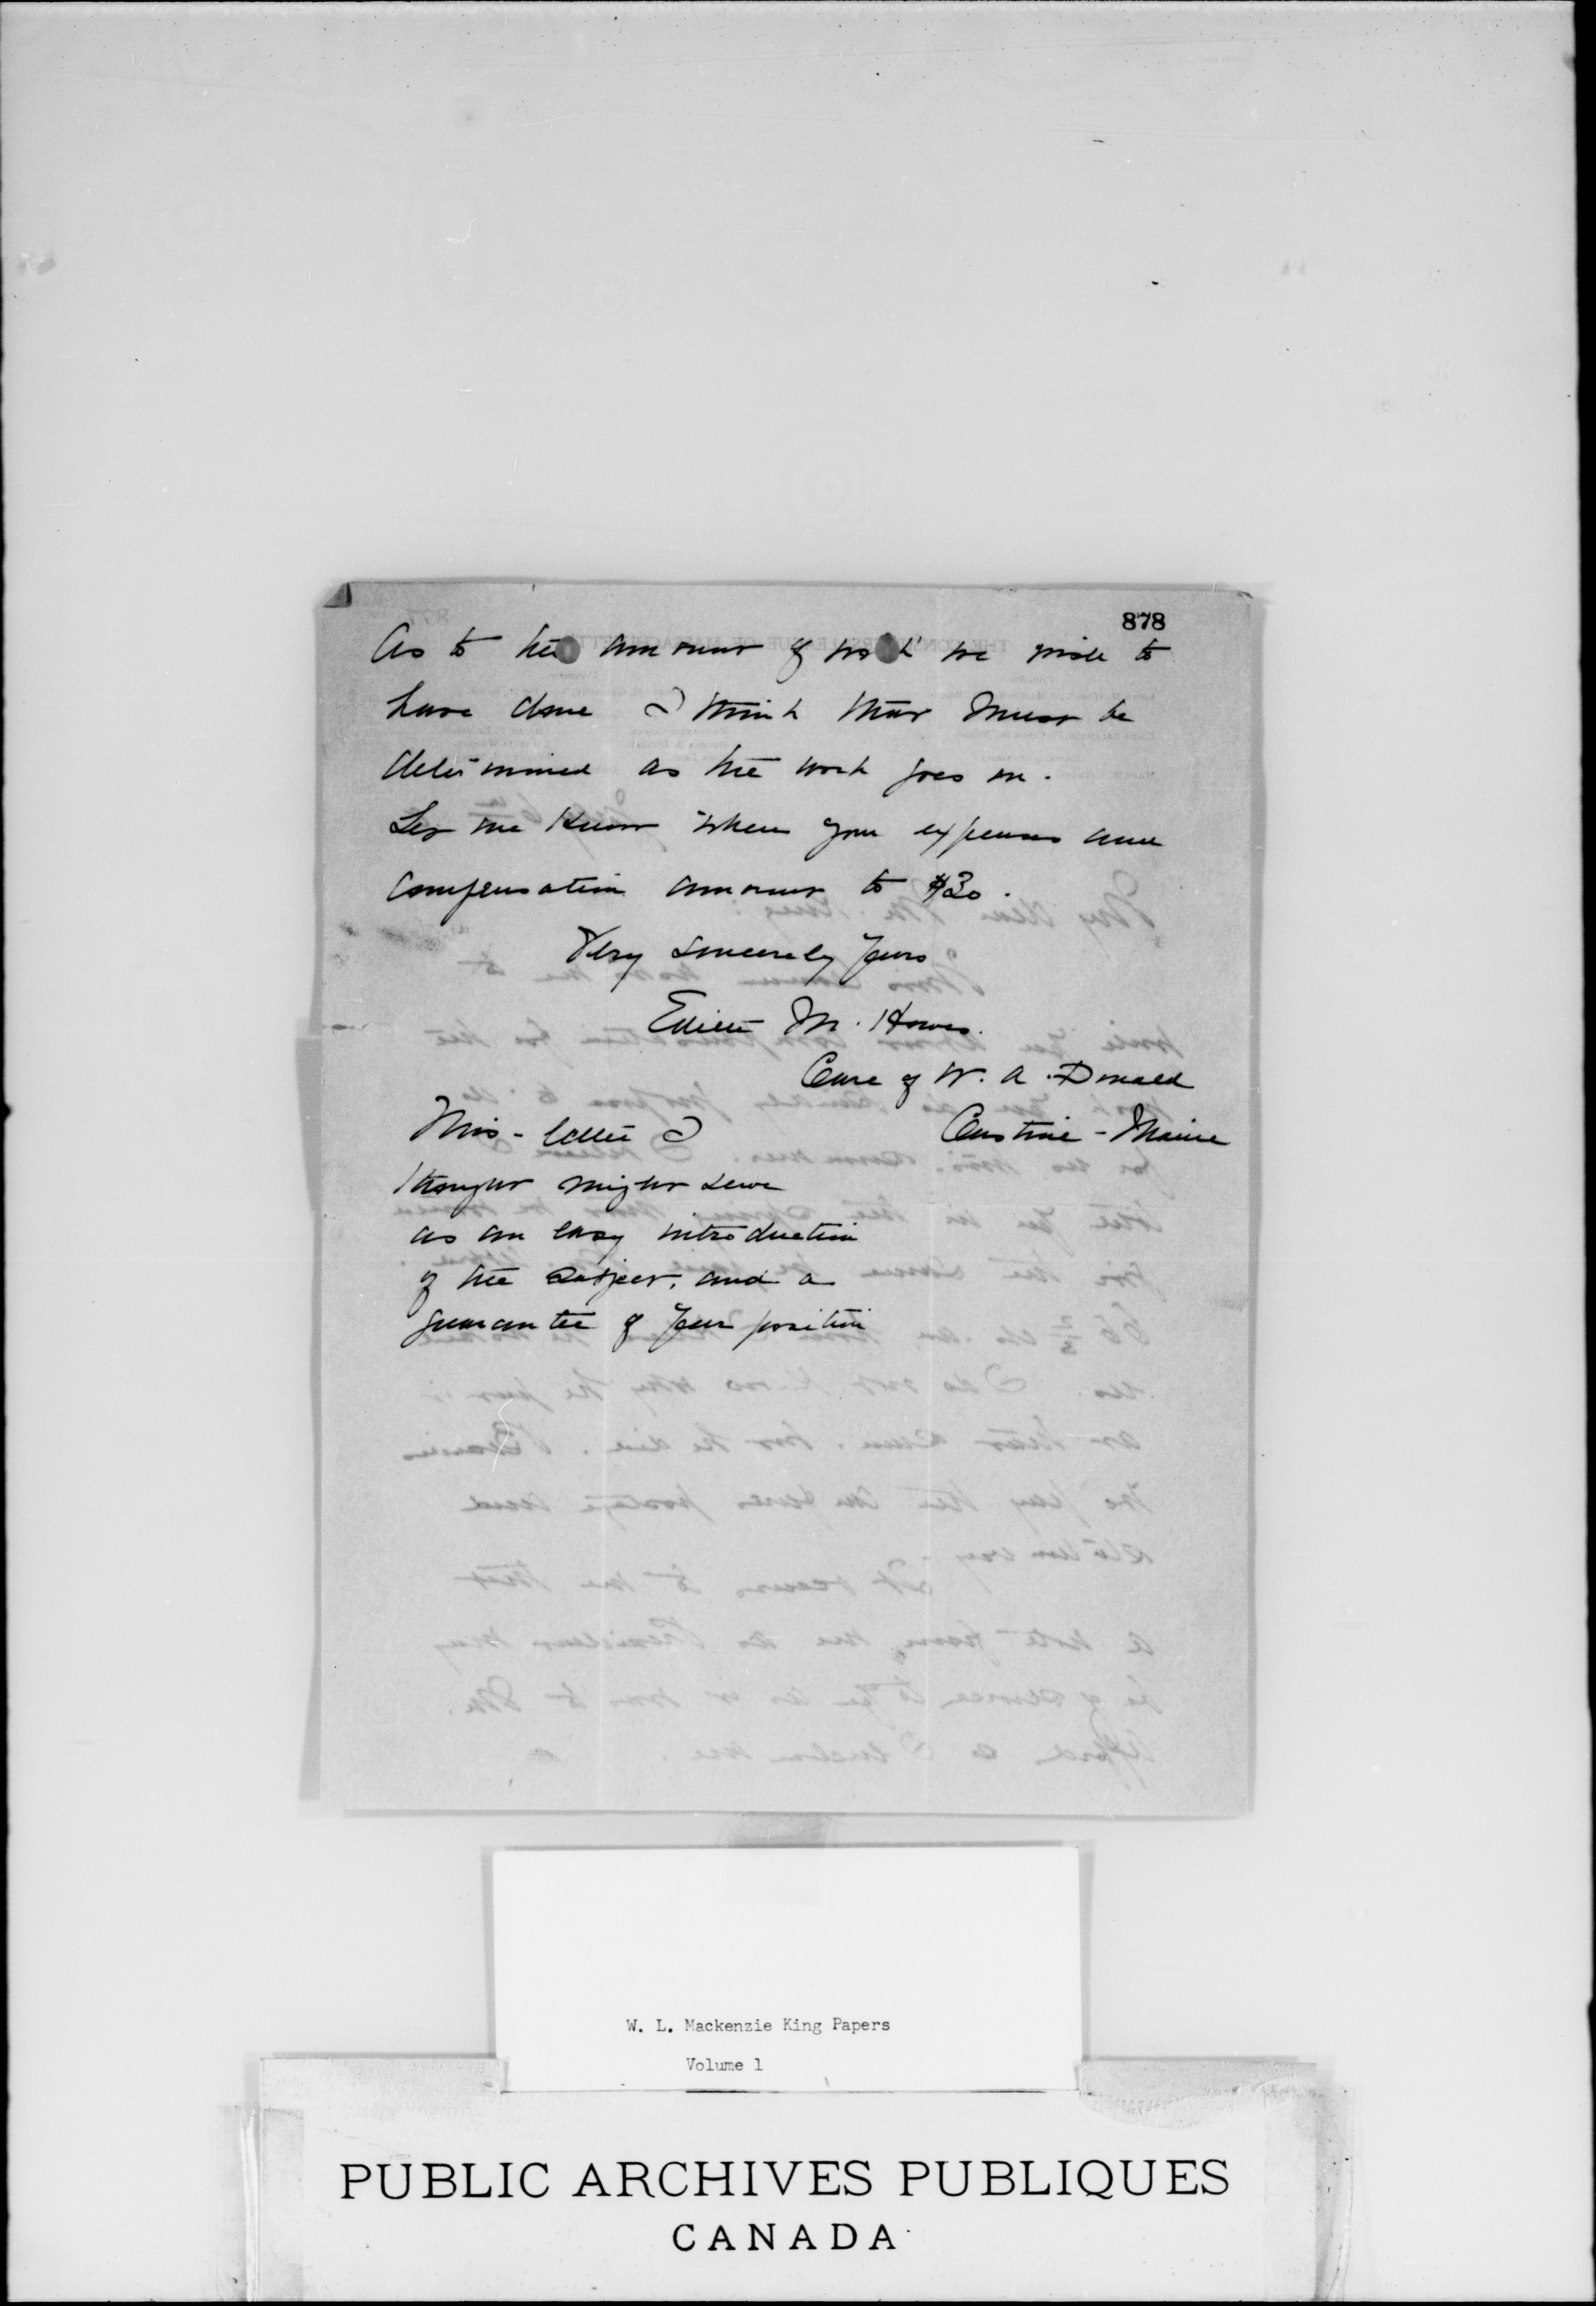 878
As to the amount of work we wish to
have done I think that must be
determined as the work goes on.
Let me know when your expenses and
compensation amount to $30.
Very sincerely yours
Edith M. Howes.
Care of W. A. Donald
Castine - Maine
This letter I
thought might serve
as an easy introduction
of the subject, and a
guarantee of your position
W. L. Mackenzie King Papers
Volume 1
PUBLIC ARCHIVES PUBLIQUES
CANADA